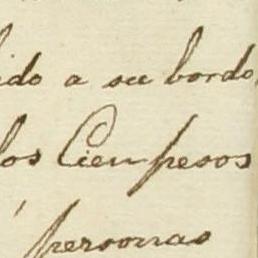 ido a su bordo,
los Cien pesos
personas